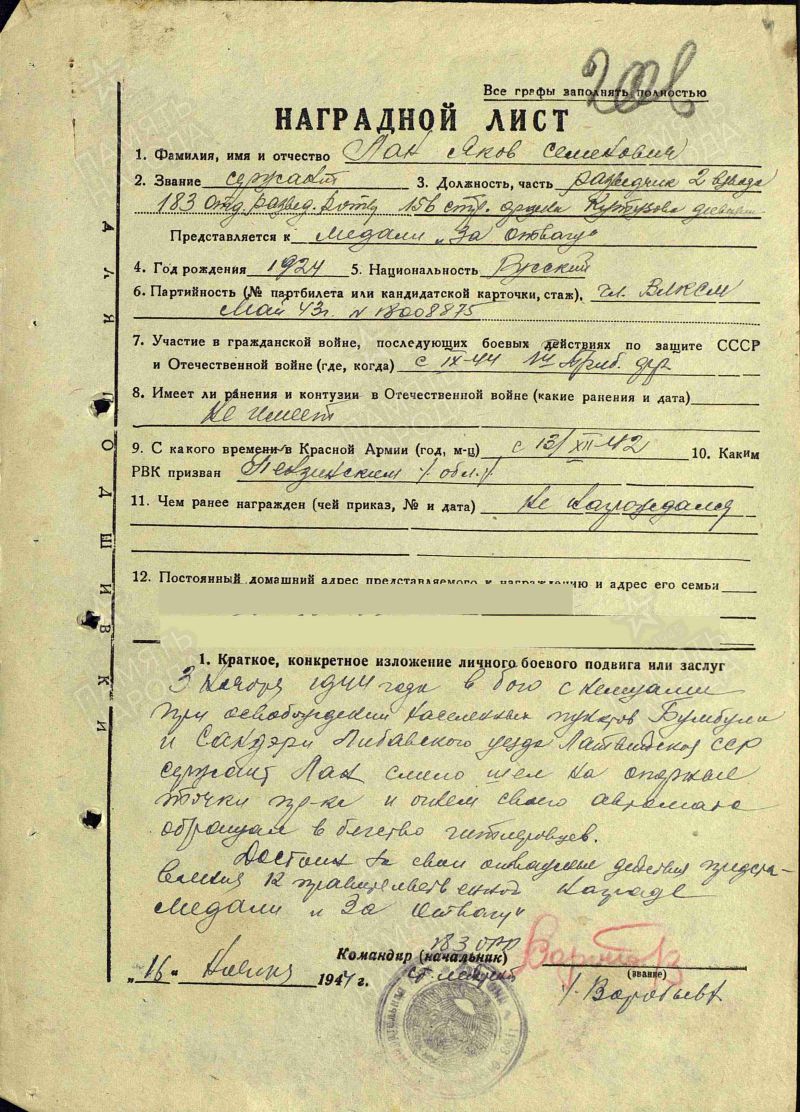 Все графы заполнять полностью
НАГРАДНОЙ ЛИСТ
1. Фамилия, имя и отчество Лан Яков Семенович
2. Звание сержант 3. Должность, часть разведчик 2 взвода
183 отд. развед. роты 156 стр. ордена Кутузова дивизии
Представляется к медали „За отвагу"
4. Год рождения 1924 5. Национальность Русский
6. Партийность (№ партбилета или кандидатской карточки, стаж), чл. ВЛКСМ
Май 43г. N 18008875
7. Участие в гражданской войне, последующих боевых действиях по защите СССР
и Отечественной войне (где, когда) с IX-44 Приб. фр.
8. Имеет ли ранения и контузии в Отечественной войне (какие ранения и дата)
Не имеет
9. С какого времени в Красной Армии (год, м-ц) с 13/XII-42 10. Каким
РВК призван Пензинским /. обл./.
11. Чем ранее награжден (чей приказ, № и дата) Не награждался
12. Постоянный домашний адрес представляемого к награждению и адрес его семьи
1. Краткое, конкретное изложение личного боевого подвига или заслуг
3 Ноября 1944 года в бою с немцами
при освобождении населенных пунктов Бумбули
и Сандэри Либавского уезда Латвийской ССР
сержант Лан смело шел на огневые
точки пр-ка и огнем своего автомата
обращал в бегство гитлеровцев.
Достоин за свои отважные действия представ-
ления к правительственной награде
медали „За Отвагу"
183 ОРР
Командир (начальник)
ст. лейтенант
(звание)
/. Воробьев/.
„16" Ноября 1944 г.
ДЛЯ ПОДШИВКИ
ПАМЯТЬ НАРОДА